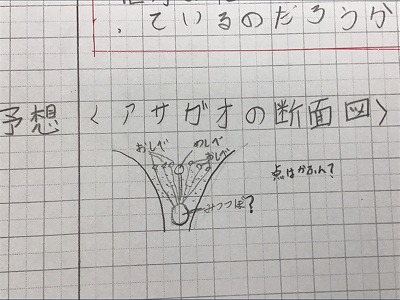 ているのだろうか
予想 〈アサガオの断面図〉
おしべ
めしべ
おしべ
みつつぼ?
点はかふん?